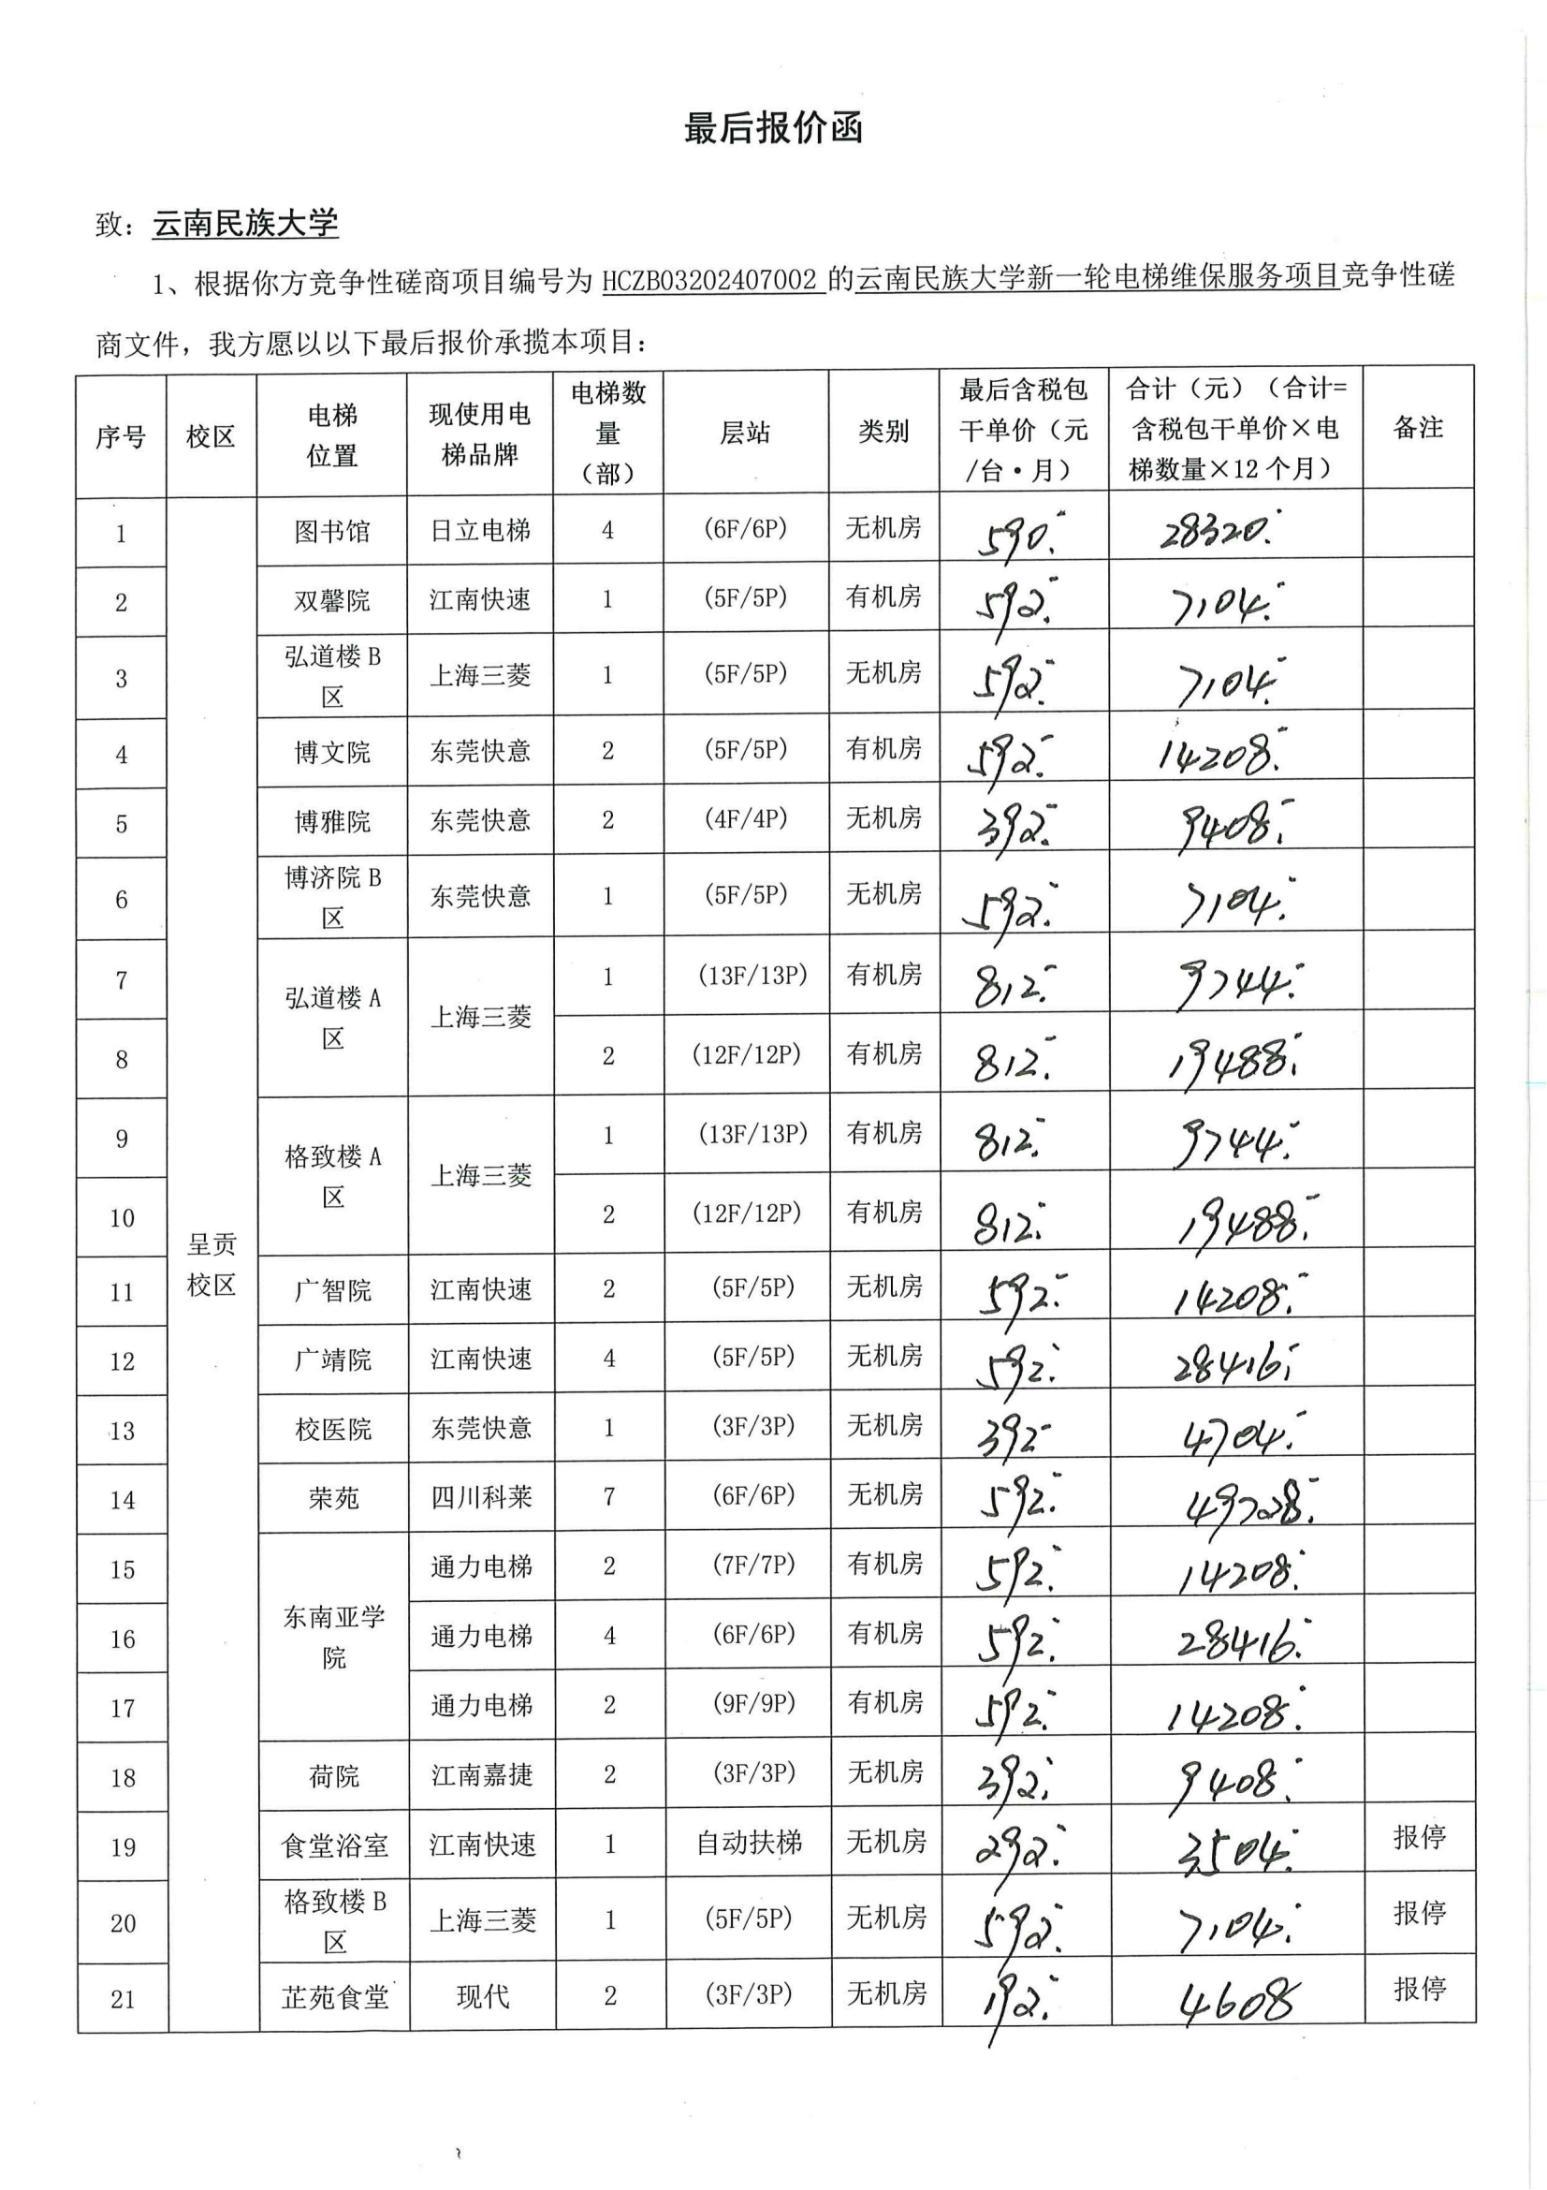 最后报价函
致：云南民族大学
1、根据你方竞争性磋商项目编号为 HCZB03202407002 的云南民族大学新一轮电梯维保服务项目竞争性磋
商文件，我方愿以以下最后报价承揽本项目：
序号 校区 电梯位置 现使用电梯品牌 电梯数量（部） 层站 类别 最后含税包干单价（元/台·月） 合计（元）（合计=含税包干单价×电梯数量×12个月） 备注
呈贡校区
1 图书馆 日立电梯 4 (6F/6P) 无机房 590.- 28320.-
2 双馨院 江南快速 1 (5F/5P) 有机房 592.- 7104.-
3 弘道楼 B区 上海三菱 1 (5F/5P) 无机房 592.- 7104.-
4 博文院 东莞快意 2 (5F/5P) 有机房 592.- 14208.-
5 博雅院 东莞快意 2 (4F/4P) 无机房 392.- 9408.-
6 博济院 B区 东莞快意 1 (5F/5P) 无机房 592.- 7104.-
7 弘道楼 A区 上海三菱 1 (13F/13P) 有机房 812.- 9744.-
8 2 (12F/12P) 有机房 812.- 19488.-
9 格致楼 A区 上海三菱 1 (13F/13P) 有机房 812.- 9744.-
10 2 (12F/12P) 有机房 812.- 19488.-
11 广智院 江南快速 2 (5F/5P) 无机房 592.- 14208.-
12 广靖院 江南快速 4 (5F/5P) 无机房 592.- 28416.-
13 校医院 东莞快意 1 (3F/3P) 无机房 392- 4704.-
14 荣苑 四川科莱 7 (6F/6P) 无机房 592.- 49728.-
15 东南亚学院 通力电梯 2 (7F/7P) 有机房 592.- 14208.-
16 通力电梯 4 (6F/6P) 有机房 592.- 28416.-
17 通力电梯 2 (9F/9P) 有机房 592.- 14208.-
18 荷院 江南嘉捷 2 (3F/3P) 无机房 392.- 9408.-
19 食堂浴室 江南快速 1 自动扶梯 无机房 292.- 3504.- 报停
20 格致楼 B区 上海三菱 1 (5F/5P) 无机房 592.- 7104.- 报停
21 芷苑食堂 现代 2 (3F/3P) 无机房 192.- 4608 报停